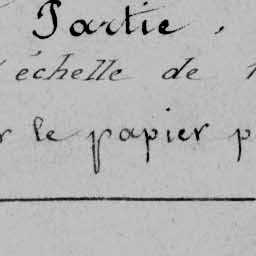 Partie.
échelle de
le papier